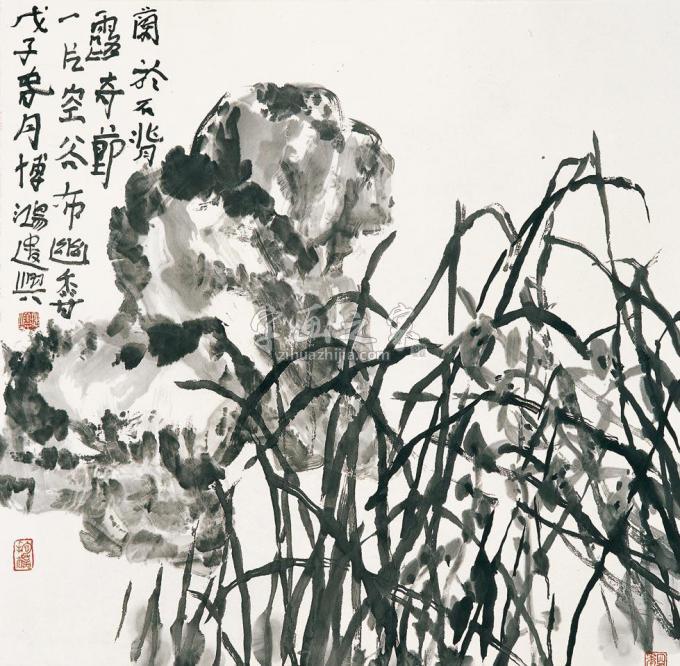 蘭於石背
露奇節
一片空谷布幽香
戊子月博鴻遣興
字画之家
zihuazhijia.com